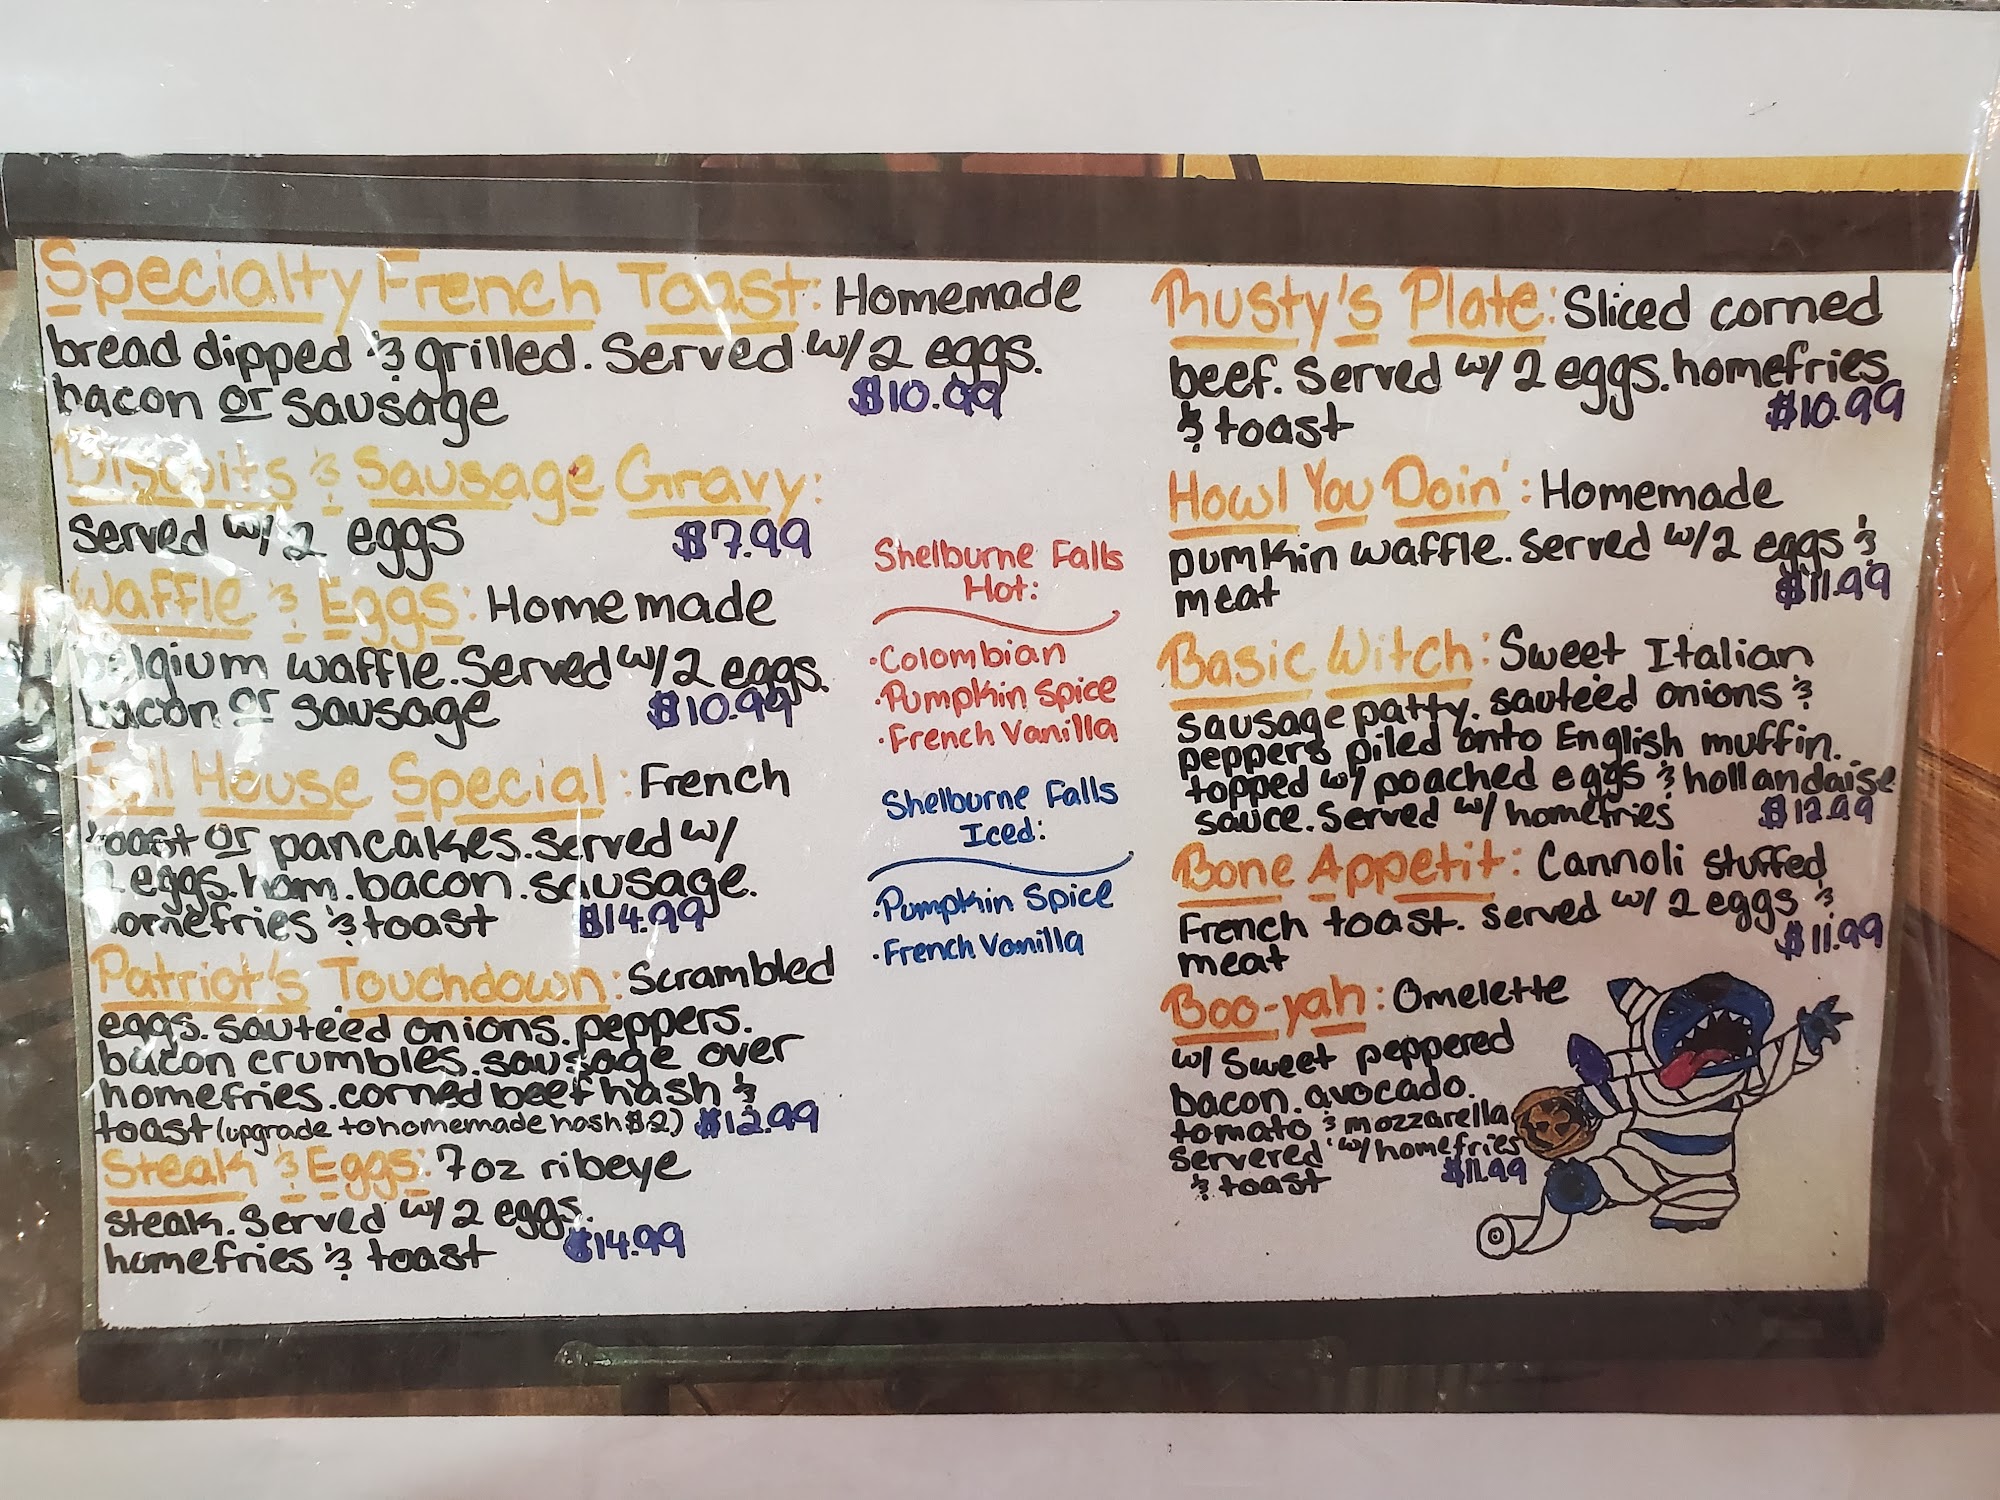 Specialty French Toast: Homemade
bread dipped & grilled. Served w/ 2 eggs.
bacon or sausage $10.99
Biscuits & Sausage Gravy:
served w/ 2 eggs $7.99
Waffle & Eggs: Homemade
belgium waffle. Served w/ 2 eggs.
bacon or sausage $10.99
Full House Special: French
toast or pancakes. served w/
2 eggs. ham. bacon. sausage.
homefries & toast $14.99
Patriot's Touchdown: Scrambled
eggs. sauteed onions. peppers.
bacon crumbles. sausage over
homefries. corned beef hash &
toast (upgrade to homemade hash $2) $12.99
Steak & Eggs: 7oz ribeye
steak. Served w/ 2 eggs.
homefries & toast $14.99
Shelburne Falls
Hot:
·Colombian
·Pumpkin Spice
·French Vanilla
Shelburne Falls
Iced:
·Pumpkin Spice
·French Vanilla
Rusty's Plate: Sliced corned
beef. Served w/ 2 eggs. homefries
& toast $10.99
Howl You Doin': Homemade
pumkin waffle. Served w/ 2 eggs &
meat $11.99
Basic Witch: Sweet Italian
sausage patty. sauteed onions &
peppers piled onto English muffin.
topped w/ poached eggs & hollandaise
sauce. Served w/ homefries $12.99
Bone Appetit: Cannoli stuffed
French toast. Served w/ 2 eggs &
meat $11.99
Boo-yah: Omelette
w/ Sweet peppered
bacon. avocado.
tomato & mozzarella
servered w/ homefries
& toast $11.99